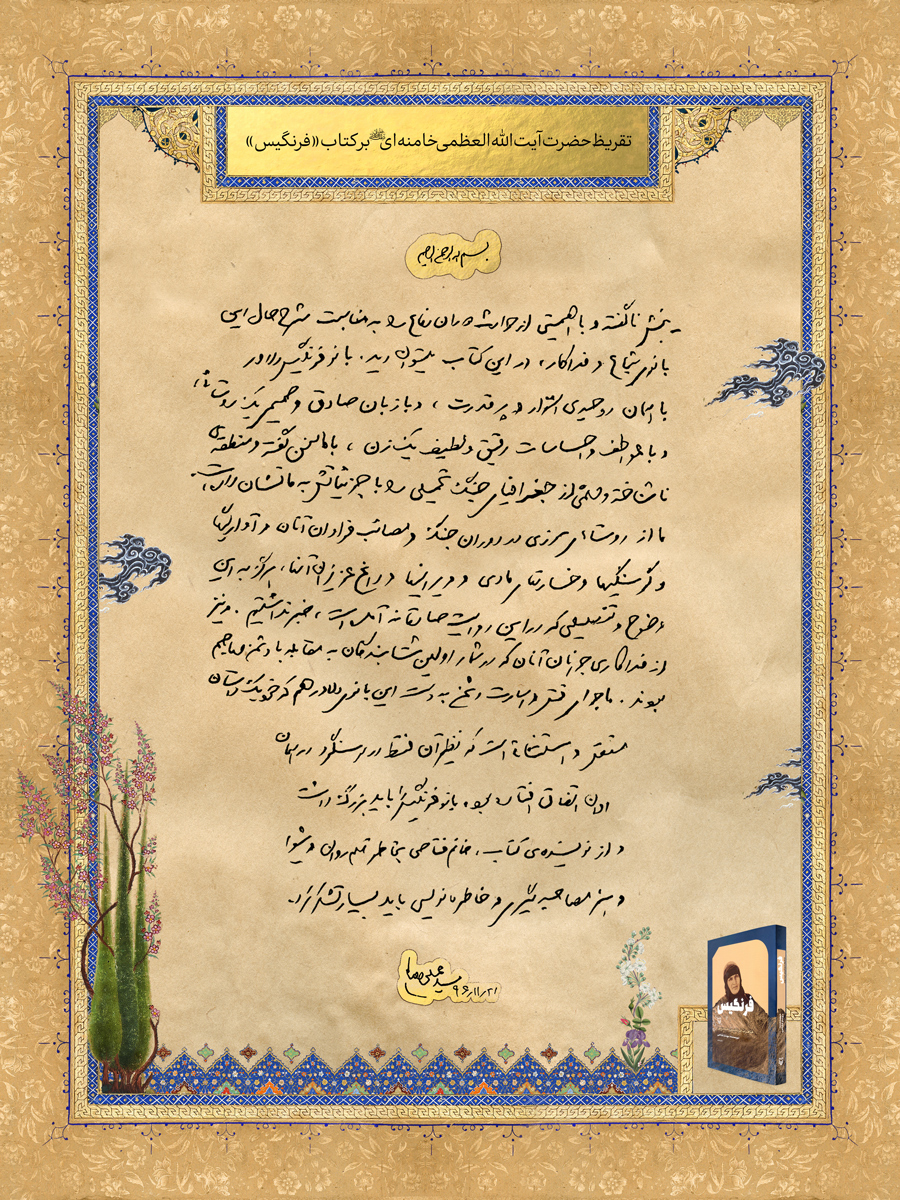 تقریظ حضرت آیت الله العظمی خامنه ای بر کتاب «فرنگیس»
بسم الله الرحمن الرحیم
بخش ناگفته و با اهمیتی از حوادث دوران دفاع را به مناسبت شرح حال این
بانوی شجاع و فداکار، در این کتاب میتوان دید. بانو فرنگیس دلاور
با همان روحیه‌ی استوار و پر قدرت، و با زبان صادق و صمیمی یک روستائی،
و با عواطف و احساسات رقیق و لطیف یک زن، با ما سخن گفته و منطقه‌ی
ناشناخته و مهمّی از جغرافیای جنگ تحمیلی را با جزئیاتش به ما نشان داده است.
ما از روستاهای مرزی در دوران جنگ و مصائب فراوان آنان و آوارگیها
و گرسنگیها و خسارتهای مادی و ویرانیها و داغ عزیزان آنها، هرگز به این
وضوح و تفصیلی که در این روایت صادقانه آمده است، خبر نداشتیم. و نیز
از فداکاری جوانان آنان که در شمار اولین شتابندگان به مقابله با دشمن مهاجم
بودند. ماجرای قتل و اسارت دشمن به دست این بانوی دلاور هم که خود یک داستان
مستقل و استثنائی است که نظیر آن فقط در سوسنگرد در همان
اوان اتفاق افتاده بود. بانو فرنگیس را باید بزرگ داشت
و از نویسنده‌ی کتاب، خانم فتاحی بخاطر قلم روان و شیوا
و هنر مصاحبه گیری و خاطره نویسی باید بسیار تشکر کرد.
سید علی خامنه‌ای
۹۶/۱۱/۲۱
فرنگیس